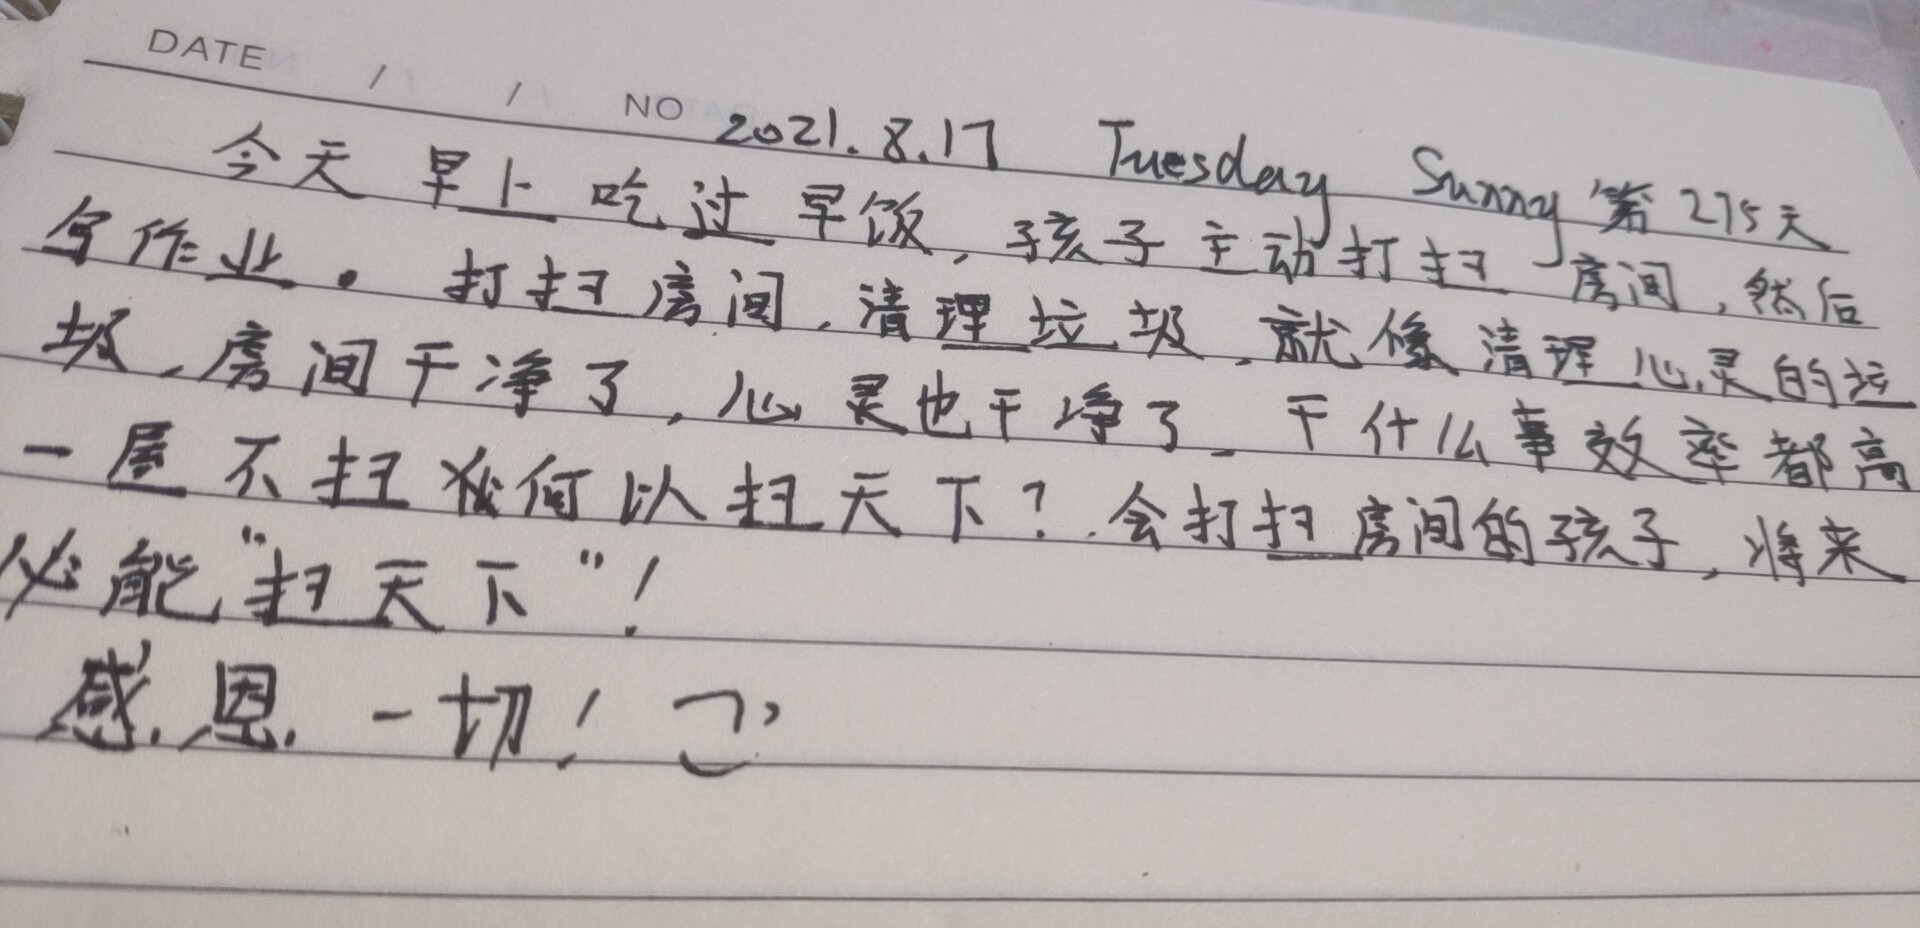 DATE / / NO 2021.8.17 Tuesday Sunny 第275天
今天早上吃过早饭,孩子主动打扫房间,然后
写作业。打扫房间,清理垃圾,就像清理心灵的垃
圾,房间干净了,心灵也干净了,干什么事效率都高
一屋不扫 何以扫天下?会打扫房间的孩子,将来
必能“扫天下”!
感恩一切!